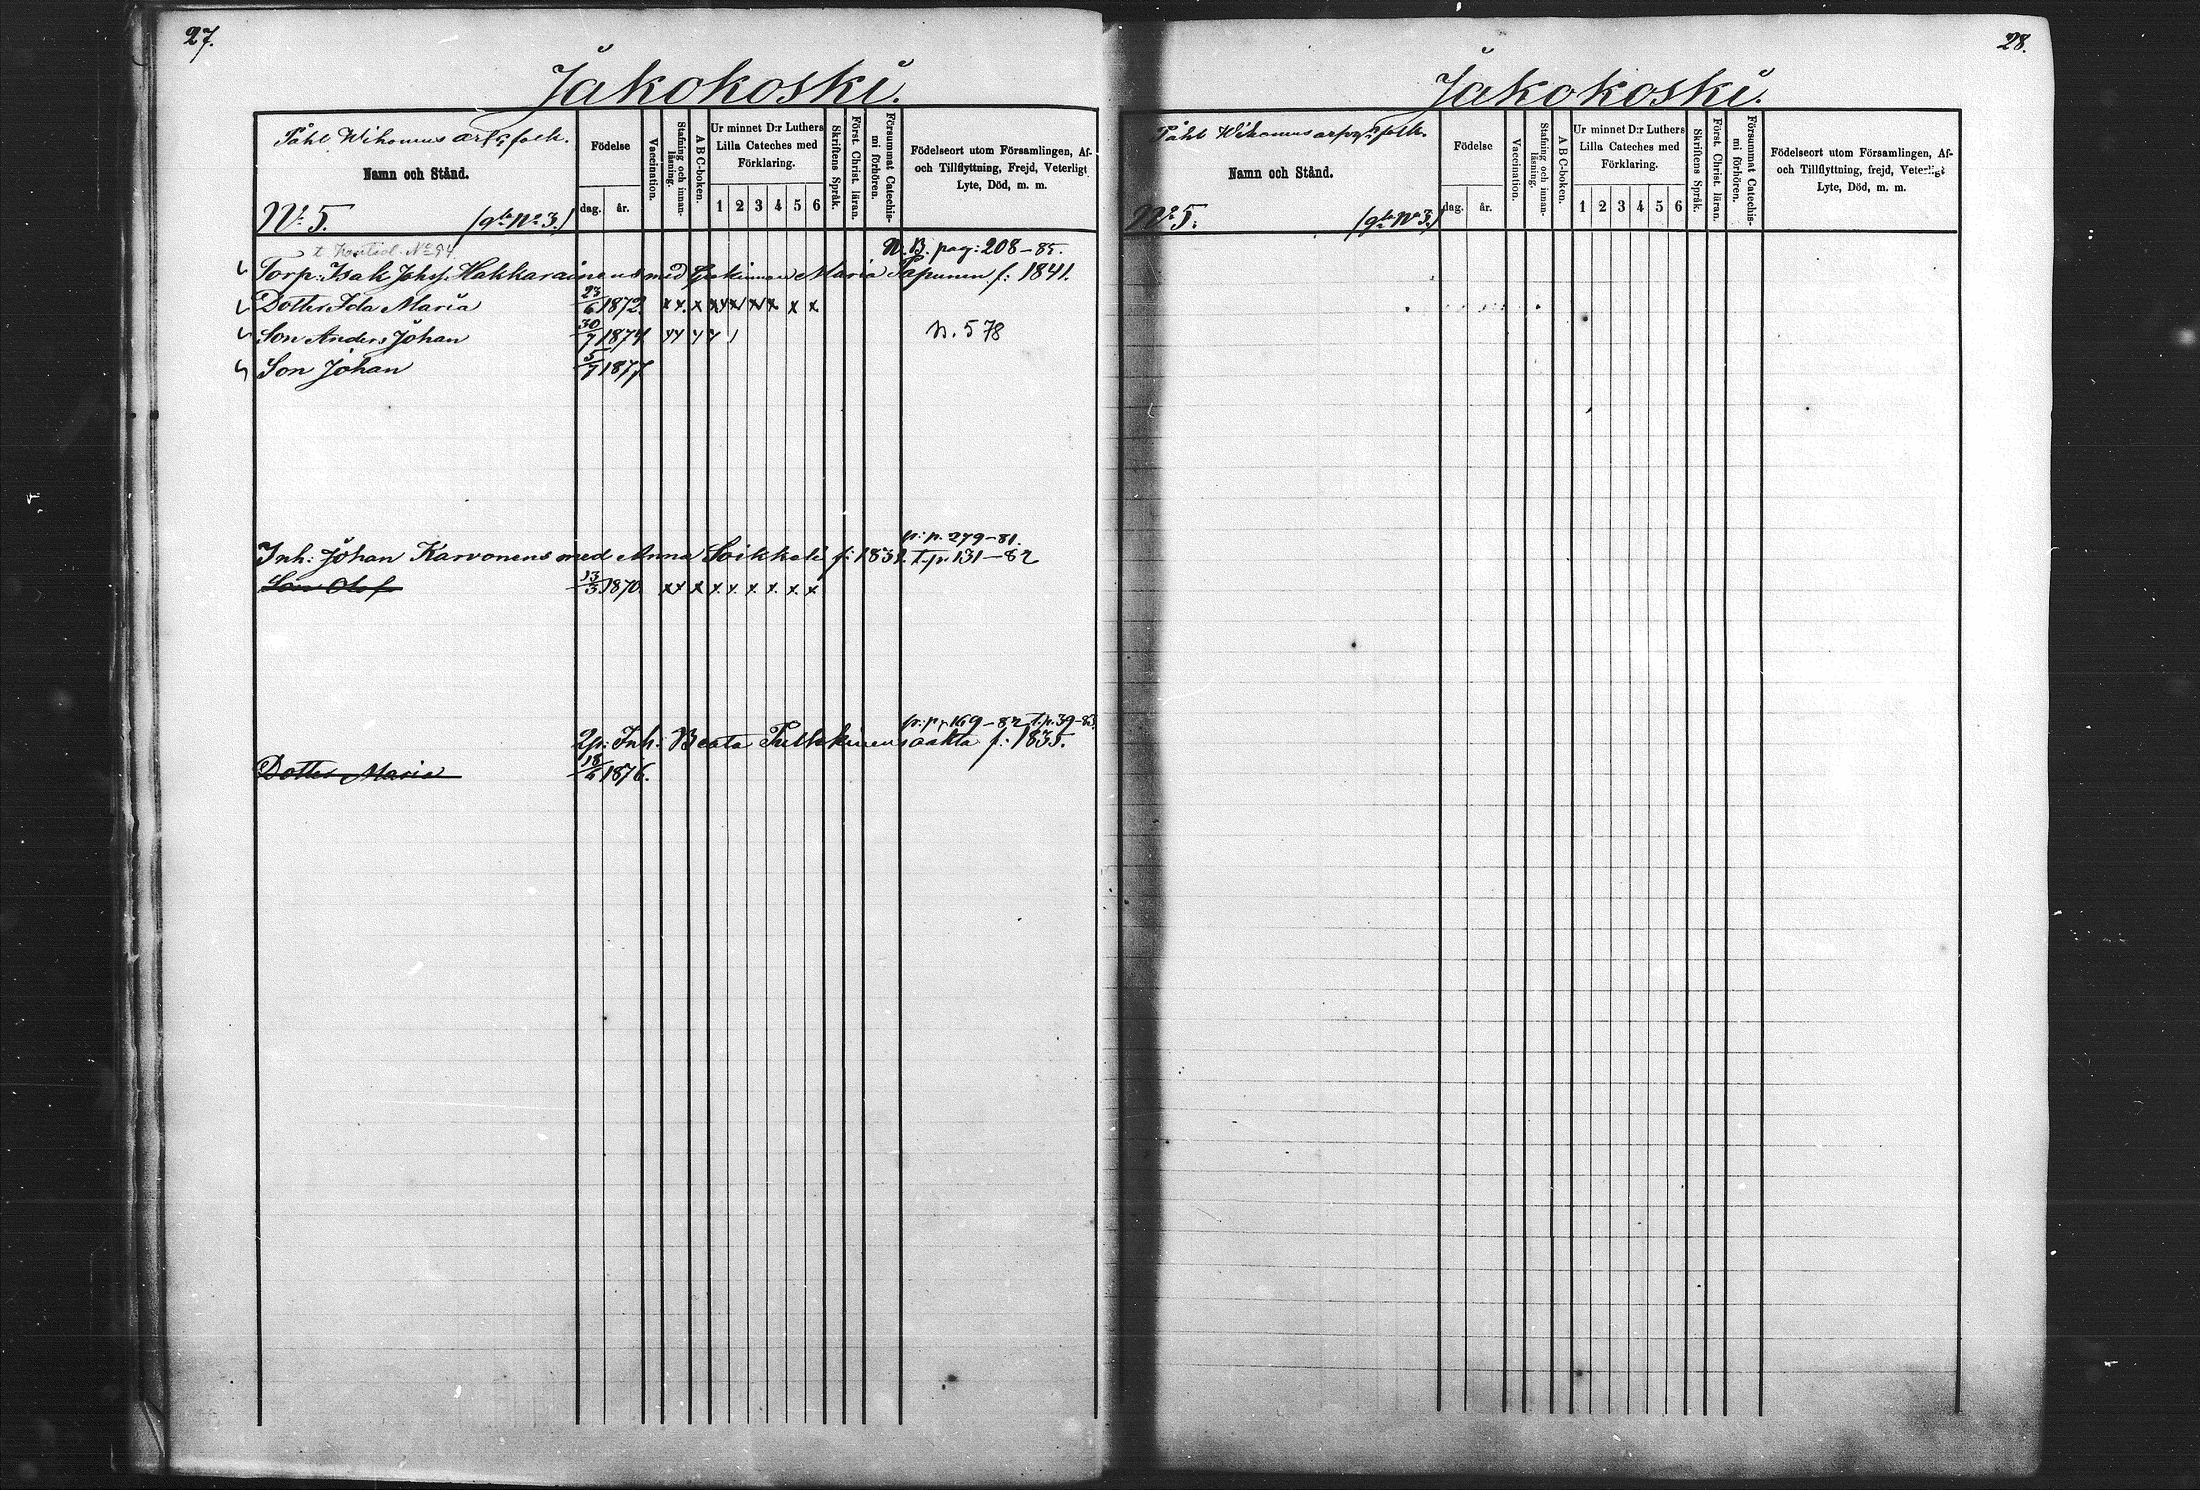 27.
Jakokoski.
Påhl Wihonens arfs folk.
Namn och Stånd.
N:o 5. (g:la N:o 3.)
Födelse
dag. år.
Vaccination.
Stafning och innanläsning.
A B C-boken.
Ur minnet D:r Luthers
Lilla Cateches med
Förklaring.
1 2 3 4 5 6
Skriftens Språk.
Först. Christ. läran.
Försummat Catechismi förhören.
Födelseort utom Församlingen, Af-
och Tillflyttning, Frejd, Veterligt
Lyte, Död, m. m.
N:o 94
N. B. pag: 208-85.
Torp: Isak Johss: Hakkarainens med Maria Papunen f: 1841.
Dotter Ida Maria 23/6 1872. x x. x x x x x x x x
Son Anders Johan 30/7 1874 N. 578
Son Johan 5/7 1877.
p: p. 279-81.
Inh: Johan Karvonens med Anna Soikkeli f: 1832. T. p. 131-82
Son Olof 13/3 1870. x x x x x x x x x
p: p. 169-82 T. p. 39-83
Inh: Beata f: 1835.
Dotter Maria 18/6 1876.
28.
Jakokoski.
Påhl Wihonens folk.
Namn och Stånd.
N:o 5. (g:la N:o 3.)
Födelse
dag. år.
Vaccination.
Stafning och innanläsning.
A B C-boken.
Ur minnet D:r Luthers
Lilla Cateches med
Förklaring.
1 2 3 4 5 6
Skriftens Språk.
Först. Christ. läran.
Försummat Catechismi förhören.
Födelseort utom Församlingen, Af-
och Tillflyttning, frejd, Veterligt
Lyte, Död, m. m.